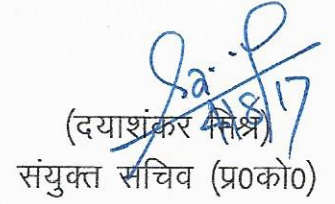 4/8/17
(दयाशंकर मिश्र)
संयुक्त सचिव (प्र0को0)